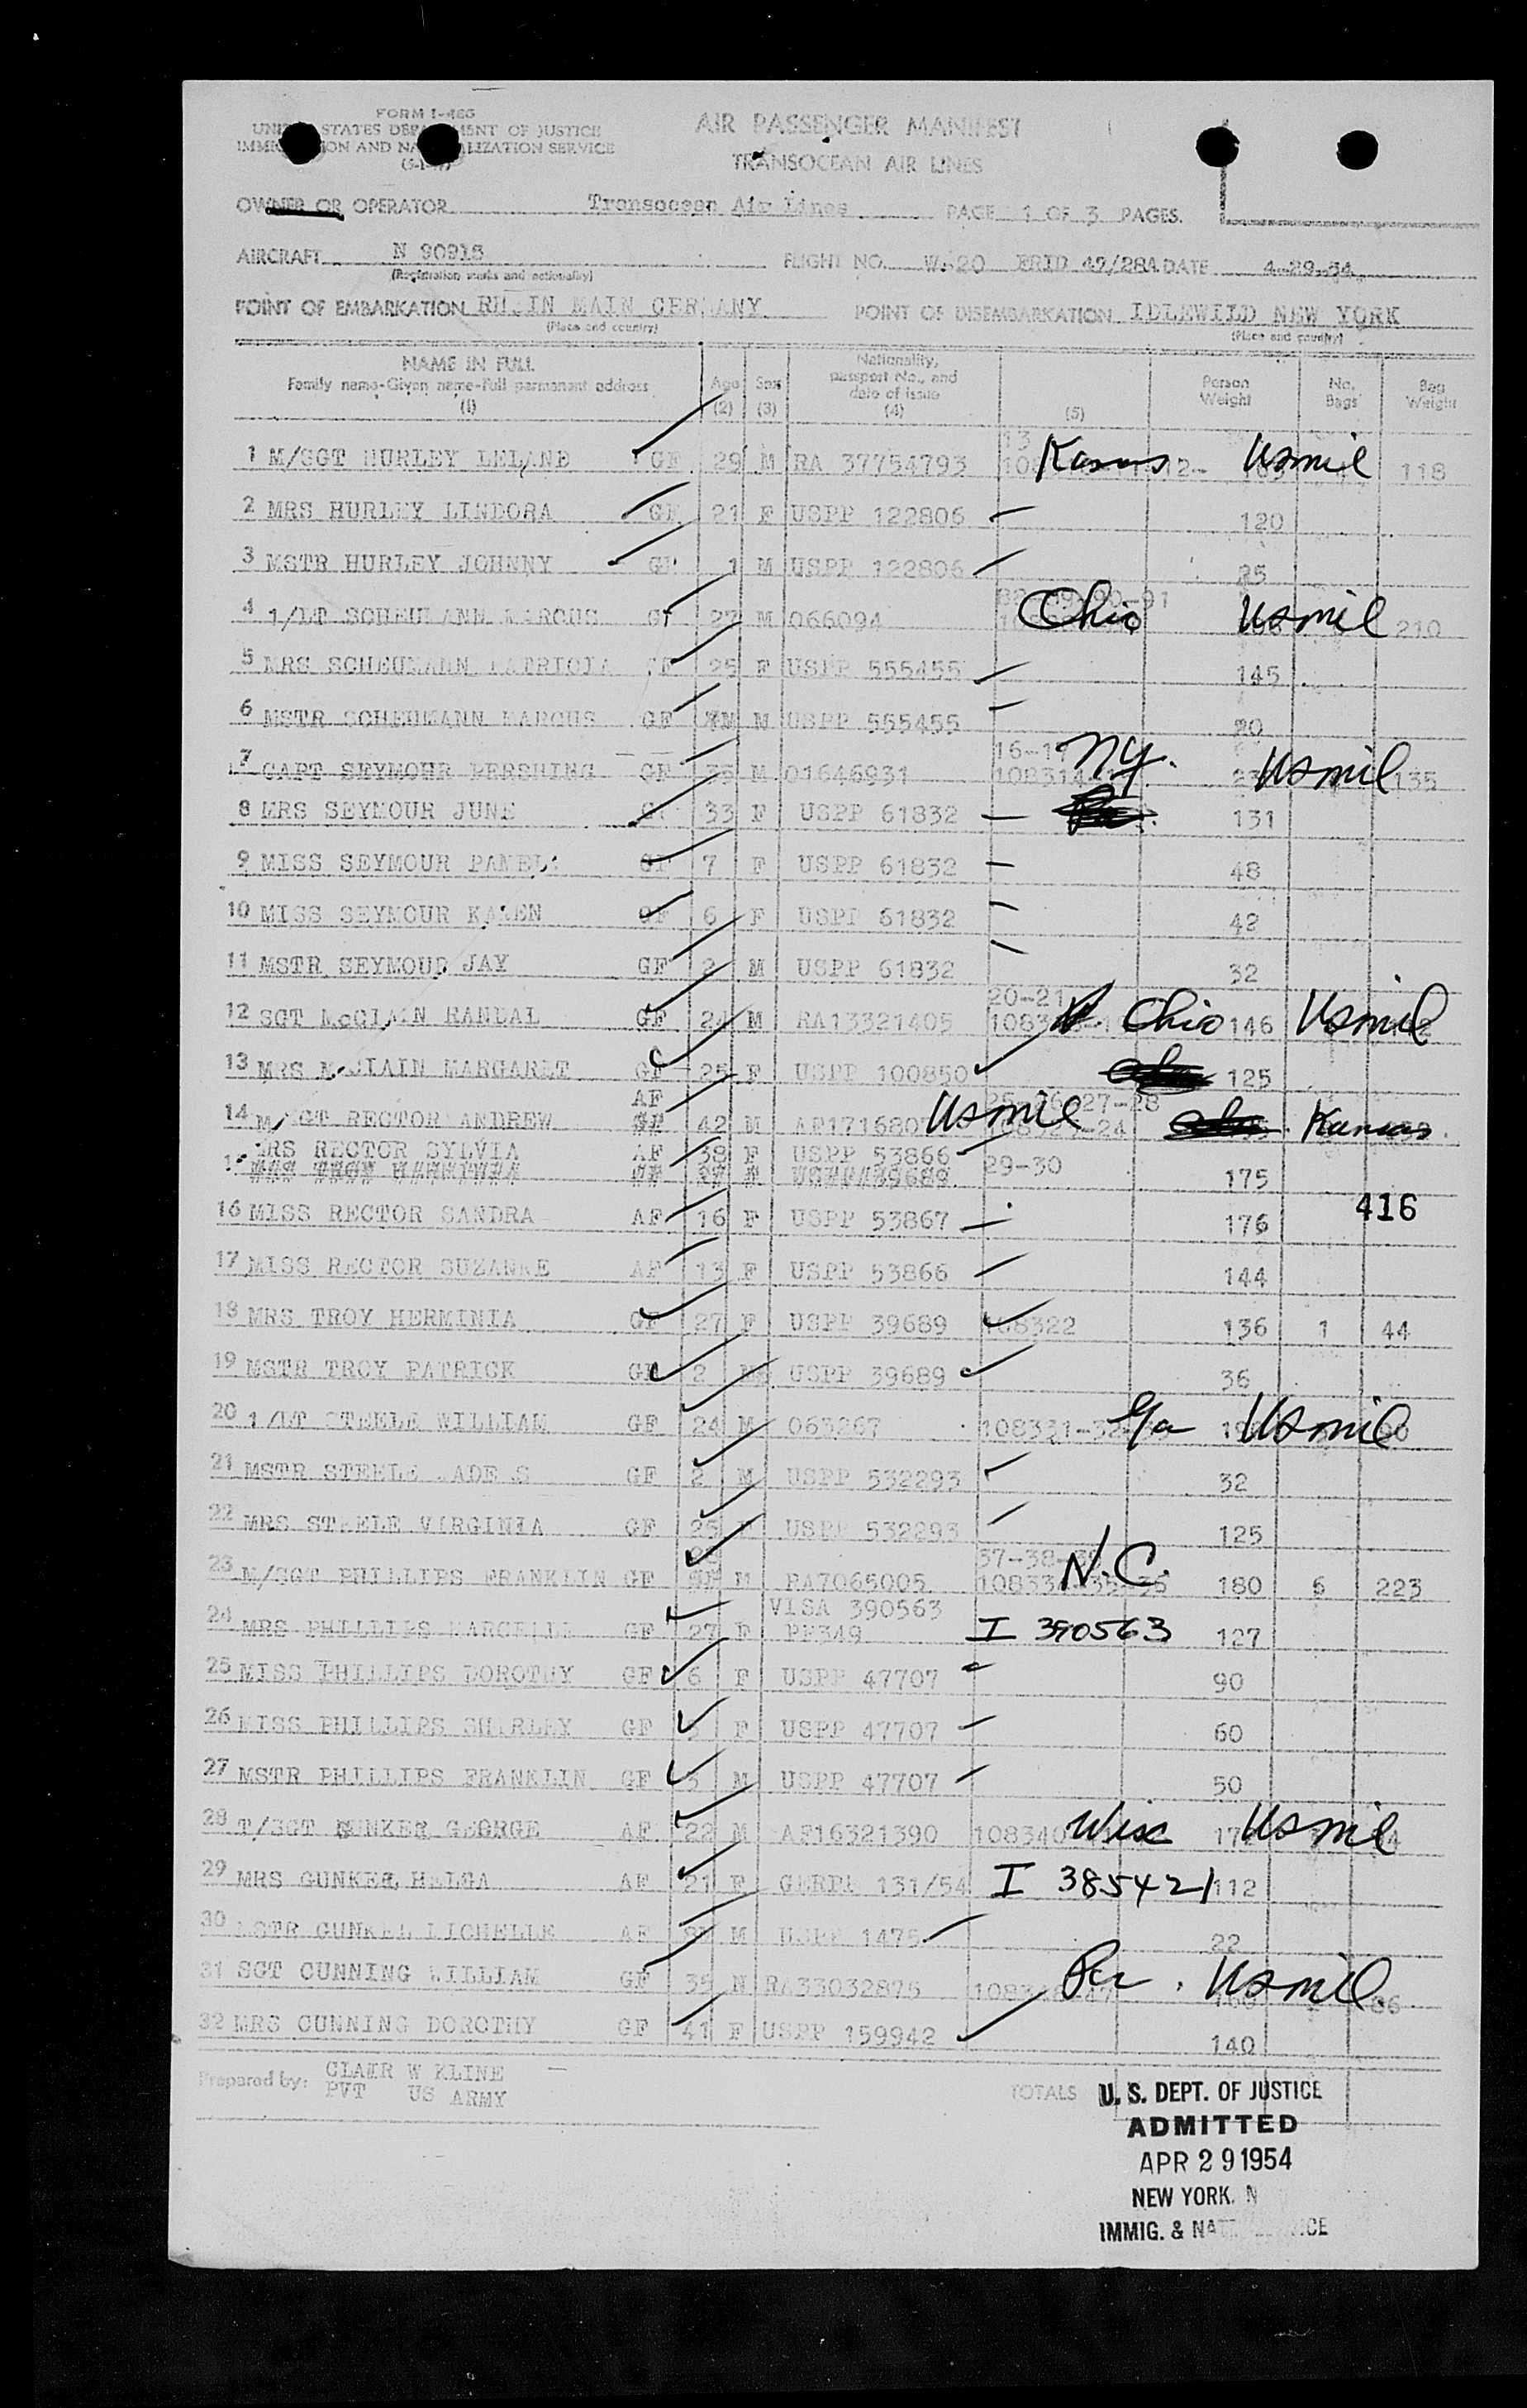 FORM I-466
UNITED STATES DEPARTMENT OF JUSTICE
IMMIGRATION AND NATURALIZATION SERVICE
AIR PASSENGER MANIFEST
TRANSOCEAN AIR LINES
OWNER OR OPERATOR Transocean Air Lines PAGE 1 OF 3 PAGES.
AIRCRAFT N 90915 FLIGHT NO. W-520 ERID 49/28A DATE 4-29-54
(Registration marks and nationality)
POINT OF EMBARKATION RHEIN MAIN GERMANY POINT OF DISEMBARKATION IDLEWILD NEW YORK
(Place and country) (Place and country)
NAME IN FULL Family name-Given name-Full permanent address (1) Age (2) Sex (3) Nationality, passport No., and date of issue (4) (5) Person Weight No. Bags Bag Weight
1 M/SGT HURLEY LELAND GF 29 M RA 37754793 Kansas Usmil 118
2 MRS HURLEY LINDORA GF 21 F USPP 122806 120
3 MSTR HURLEY JOHNNY GF 1 M USPP 122806 25
4 1/LT SCHEUMANN MARCUS GF 27 M 066094 Ohio Usmil 210
5 MRS SCHEUMANN PATRICIA GF 25 F USPP 555455 145
6 MSTR SCHEUMANN MARCUS GF M USPP 555455 20
7 CAPT SEYMOUR PERSHING GF 35 M 01646931 16-17 108314 NY. Usmil 135
8 MRS SEYMOUR JUNE GF 33 F USPP 61832 131
9 MISS SEYMOUR PAMELA GF 7 F USPP 61832 48
10 MISS SEYMOUR KAREN GF 6 F USPP 61832 42
11 MSTR SEYMOUR JAY GF 2 M USPP 61832 32
12 SGT McCLAIN RANDAL GF 24 M RA13321405 20-21 Ohio 146 Usmil
13 MRS McCLAIN MARGARET GF 25 F USPP 100850 125
14 M/SGT RECTOR ANDREW AF 42 M Usmil 27-28 Kansas
MRS RECTOR SYLVIA AF 38 F USPP 53866 29-30 175
16 MISS RECTOR SANDRA AF 16 F USPP 53867 176
416
17 MISS RECTOR SUZANNE AF 13 F USPP 53866 144
18 MRS TROY HERMINIA GF 27 F USPP 39689 108322 136 1 44
19 MSTR TROY PATRICK GF 2 M USPP 39689 36
20 1/LT STEELE WILLIAM GF 24 M 063267 108331-32 Ga Usmil
21 MSTR STEELE WADE S GF 2 M USPP 532293 32
22 MRS STEELE VIRGINIA GF 25 F USPP 532293 125
23 M/SGT PHILLIPS FRANKLIN GF M RA7065005 37-38 N.C. 180 6 223
24 MRS PHILLIPS MARCELLE GF 27 F VISA 390563 PF349 I 390563 127
25 MISS PHILLIPS DOROTHY GF 6 F USPP 47707 90
26 MISS PHILLIPS SHIRLEY GF F USPP 47707 60
27 MSTR PHILLIPS FRANKLIN GF 3 M USPP 47707 50
28 T/SGT GUNKEL GEORGE AF 22 M AF16321390 108340 Wisc Usmil
29 MRS GUNKEL HELGA AF 21 F GERPP 131/54 I 385421 112
30 MSTR GUNKEL MICHELLE AF M USPP 1475 22
31 SGT CUNNING WILLIAM GF 35 M RA33032875 Usmil
32 MRS CUNNING DOROTHY GF 41 F USPP 159942 140
Prepared by: CLAIR W KLINE TOTALS
PVT US ARMY
U. S. DEPT. OF JUSTICE
ADMITTED
APR 29 1954
NEW YORK, N
IMMIG. & NATZ SERVICE